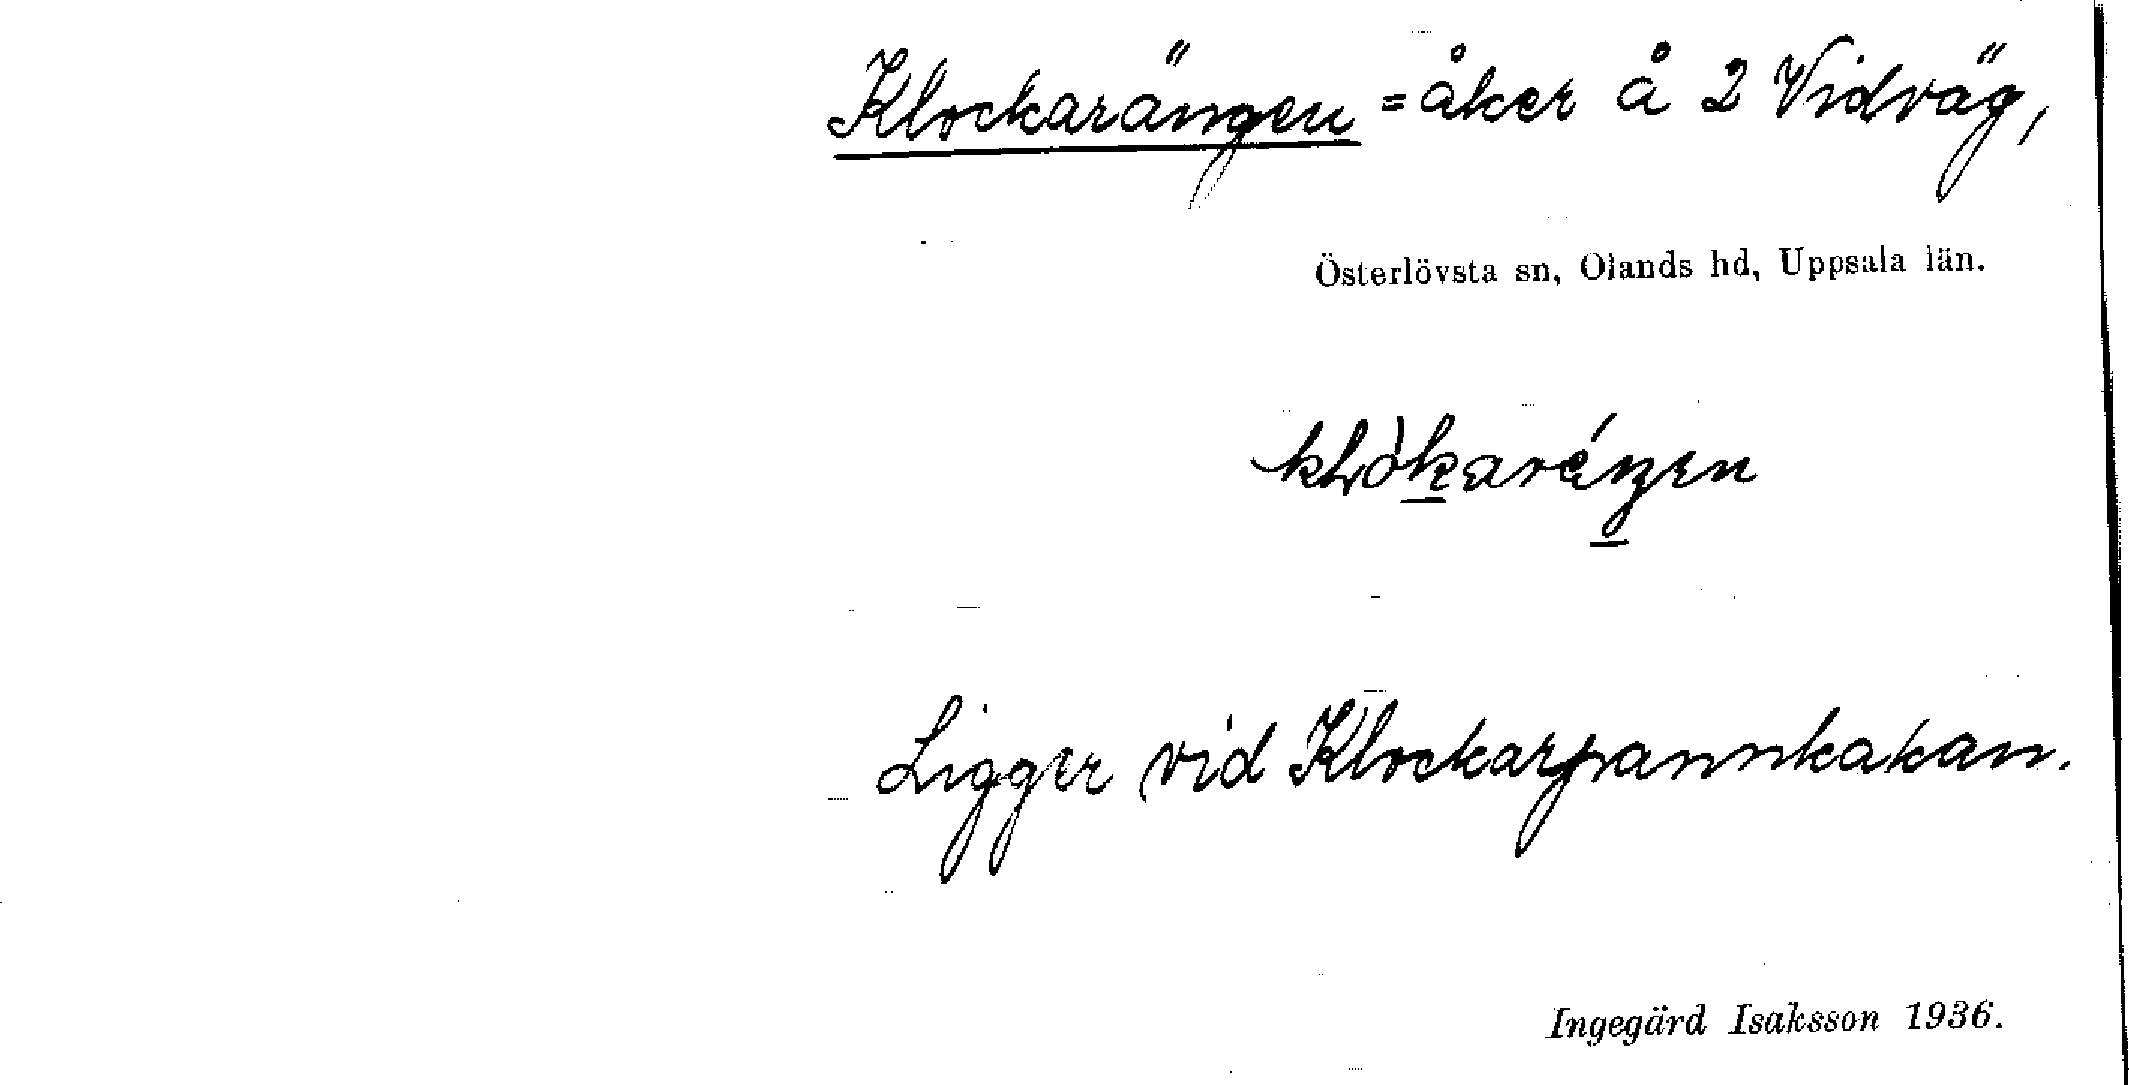 Klockarängen = åker å 2 Vidväg,
Österlövsta sn, Olands hd, Uppsala län.
Ligger vid Klockarpannkakan.
Ingegärd Isaksson 1936.